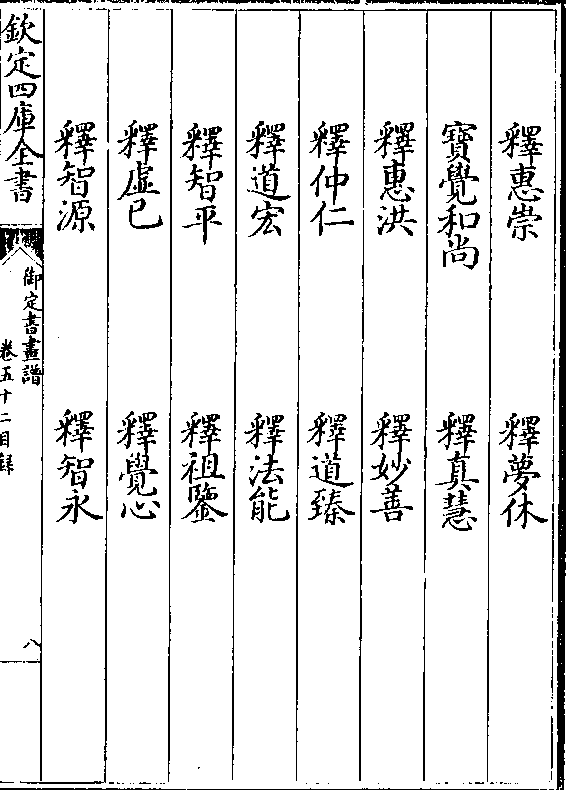 釋惠崇　釋夢休
寶覺和尚　釋真慧
釋惠洪　釋妙善
釋仲仁　釋道臻
釋道宏　釋法能
釋智平　釋祖鑒
釋虛已　釋覺心
釋智源　釋智永
欽定四庫全書
御定書畫譜
卷五十二目錄
八